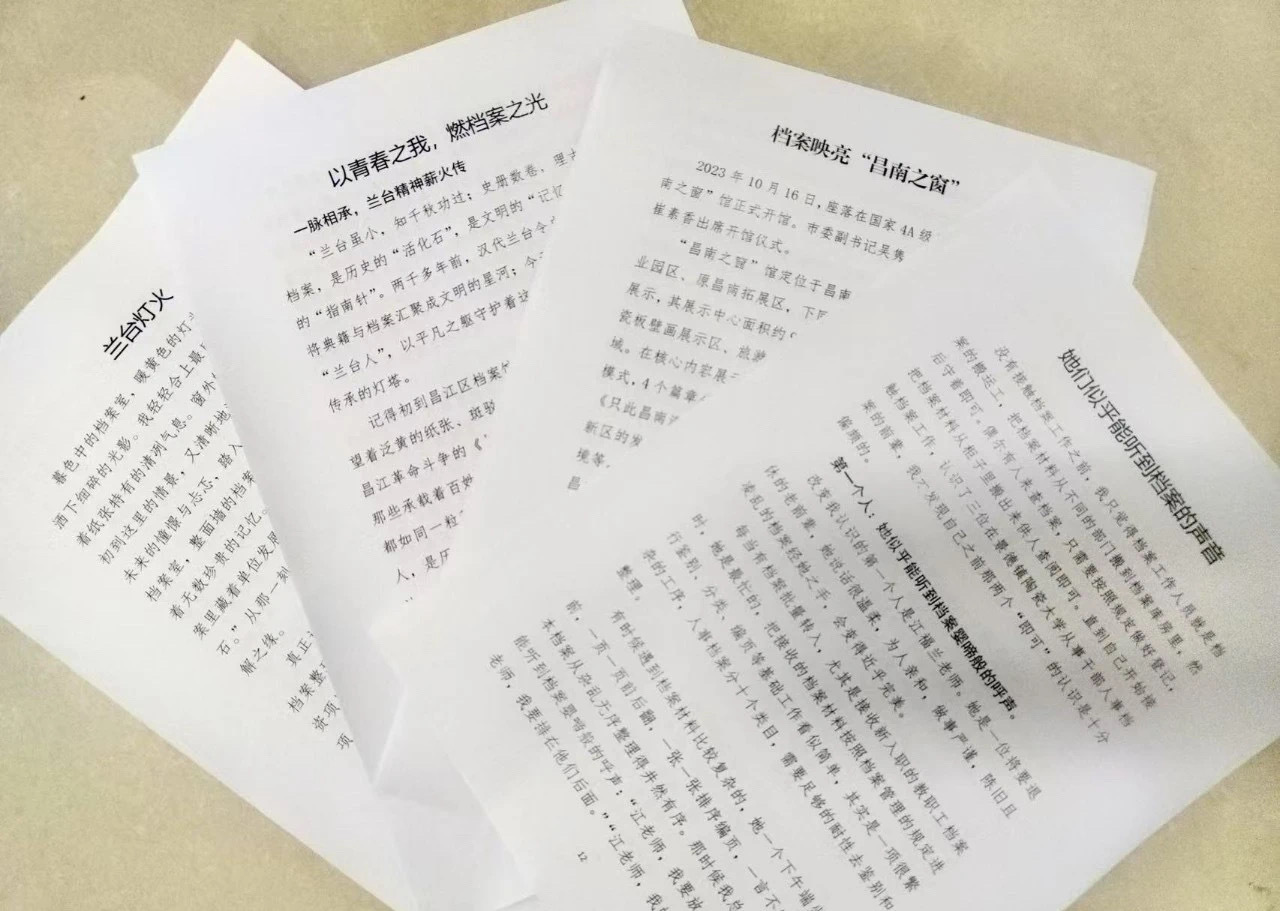 兰台灯火
暮色中的档案室，暖黄色的灯
洒下细碎的光影。我轻轻合上最
着纸张特有的清冽气息。窗外
初到这里的情景，又清晰地
未来的憧憬与忐忑，踏入
档案室，整面墙的档案
着无数珍贵的记忆。
案里藏着单位发展
石。”从那一刻
解之缘。
真正
档案整
资项
项
以青春之我，燃档案之光
一脉相承，兰台精神薪火传
“兰台虽小，知千秋功过；史册数卷，理古
档案，是历史的“活化石”，是文明的“记忆
的“指南针”。两千多年前，汉代兰台令
将典籍与档案汇聚成文明的星河；今
“兰台人”，以平凡之躯守护着这
传承的灯塔。
记得初到昌江区档案馆
望着泛黄的纸张、斑驳
昌江革命斗争的《
那些承载着百姓
都如同一粒
人，是历
档案映亮“昌南之窗”
2023 年 10 月 16 日，座落在国家 4A 级
南之窗”馆正式开馆。市委副书记吴隽
崔素香出席开馆仪式。
“昌南之窗”馆定位于昌南
业园区、原昌南拓展区，下
展示，其展示中心面积约
瓷板壁画展示区、旅游
域。在核心内容展
模式，4 个篇章
《只此昌南
新区的发
境等
昌
她们似乎能听到档案的声音
没有接触档案工作之前，我只觉得档案工作人员就是档
案的搬运工，把档案材料从不同的部门搬到档案库房里，然
后守着即可。偶尔有人来查档案，只需要按照规定做好登记，
把档案材料从柜子里搬出来供人查阅即可。直到自己开始接
触档案工作，认识了三位在景德镇陶瓷大学从事干部人事档
案的前辈，我才发现自己之前那两个“即可”的认识是十分
偏颇的。
第一个人：她似乎能听到档案婴啼般的呼声。
改变我认识的第一个人是江福兰老师。她是一位将要退
休的老前辈，她说话很温柔，为人亲和，做事严谨，陈旧且
凌乱的档案经她之手，会变得近乎完美。
每当有档案批量转入，尤其是接收新入职的教职工档案
时，她是最忙的，把接收的档案材料按照档案管理的规定进
行鉴别、分类、编页等基础工作看似简单，其实是一项很繁
杂的工序，人事档案分十个类目，需要足够的耐性去鉴别和
整理。
有时候遇到档案材料比较复杂的，她一个下午端坐
前，一页一页前后翻，一张一张排序编页，一言不
本档案从杂乱无序整理得井然有序。那时候我总
能听到档案婴啼般的呼声：“江老师，我要放
老师，我要排在他们后面。”“江老师，我
12